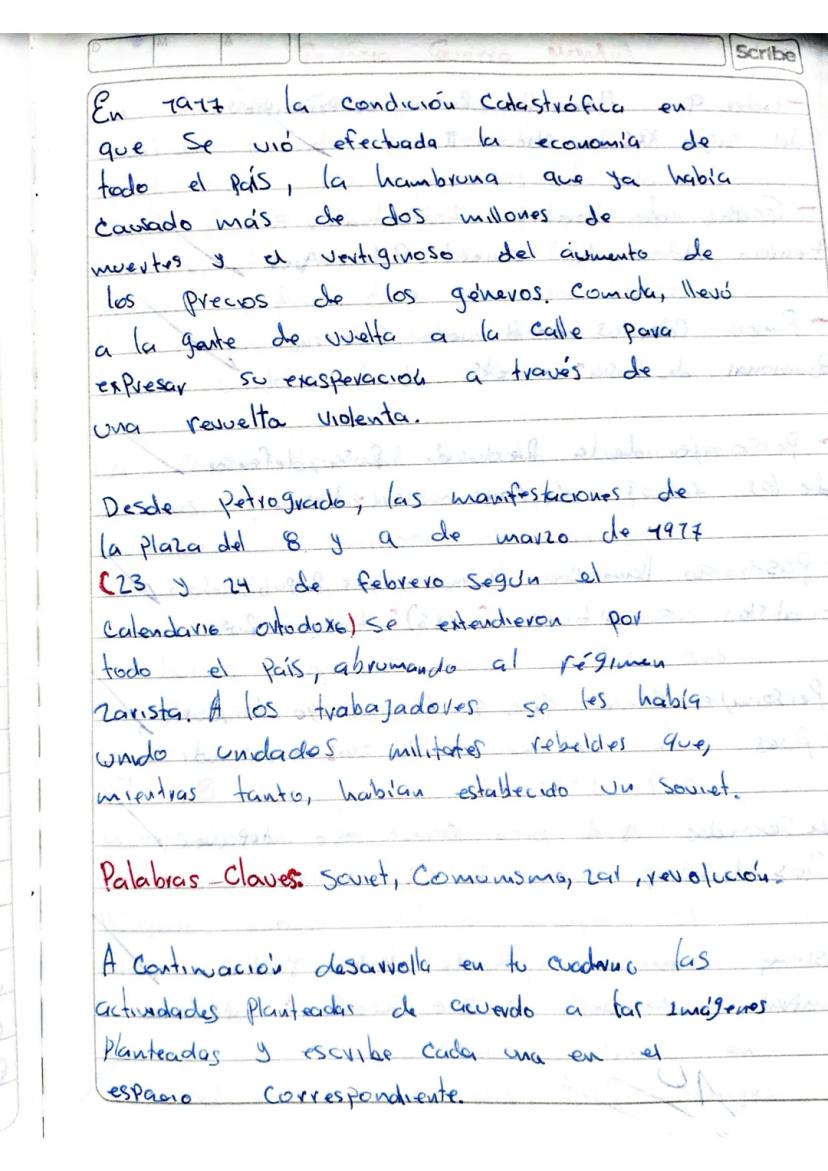 D M A Scribe
En 1917 la condición catastrófica en
que se vió efectuada la economía de
todo el País, la hambruna que ya había
causado más de dos millones de
muertos y el vertiginoso del aumento de
los precios de los géneros. Comida, llevó
a la gente de vuelta a la calle para
expresar su exasperación a través de
una revuelta violenta.
Desde Petrogrado, las manifestaciones de
la plaza del 8 y 9 de marzo de 1917
(23 y 24 de febrero según el
Calendario ortodoxo) se extendieron por
todo el País, abrumando al régimen
zarista. A los trabajadores se les había
unido unidados militares rebeldes que,
mientras tanto, habían establecido un Soviet.
Palabras Claves: Soviet, Comunismo, zar, revolución.
A Continuación desarrolla en tu cuaderno las
actividades Planteadas de acuerdo a las imágenes
Planteadas y escribe cada una en el
espacio Correspondiente.